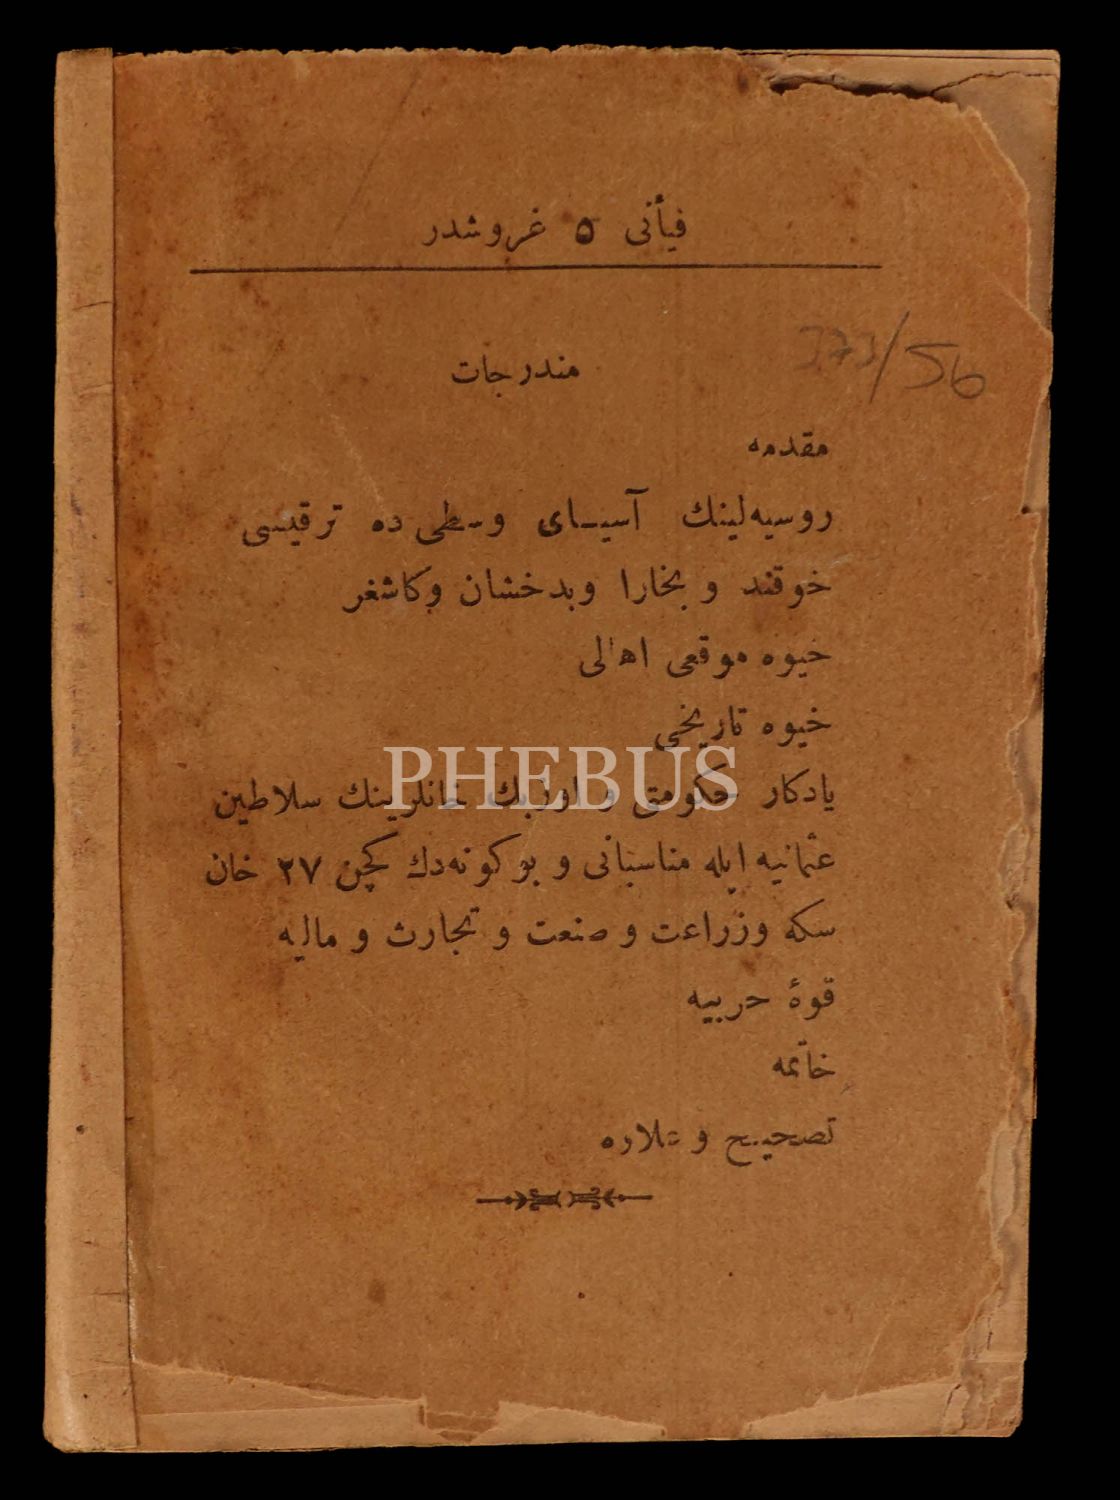 فیأتی ٥ غروشدر
373/56
مندرجات
مقدمه
روسیه‌لینك آسیای وسطی ده ترقیسی
خوقند و بخارا وبدخشان وكاشغر
خیوه موقعی اهالی
خیوه تاریخی
PHEBUS
یادكار حكومتی و اوزبك خانلرینك سلاطین
عثمانیه ایله مناسباتی و بو كونه‌دك كچن ٢٧ خان
سكه وزراعت و صنعت و تجارت و مالیه
قوۀ حربیه
خاتمه
تصحیح و علاوه